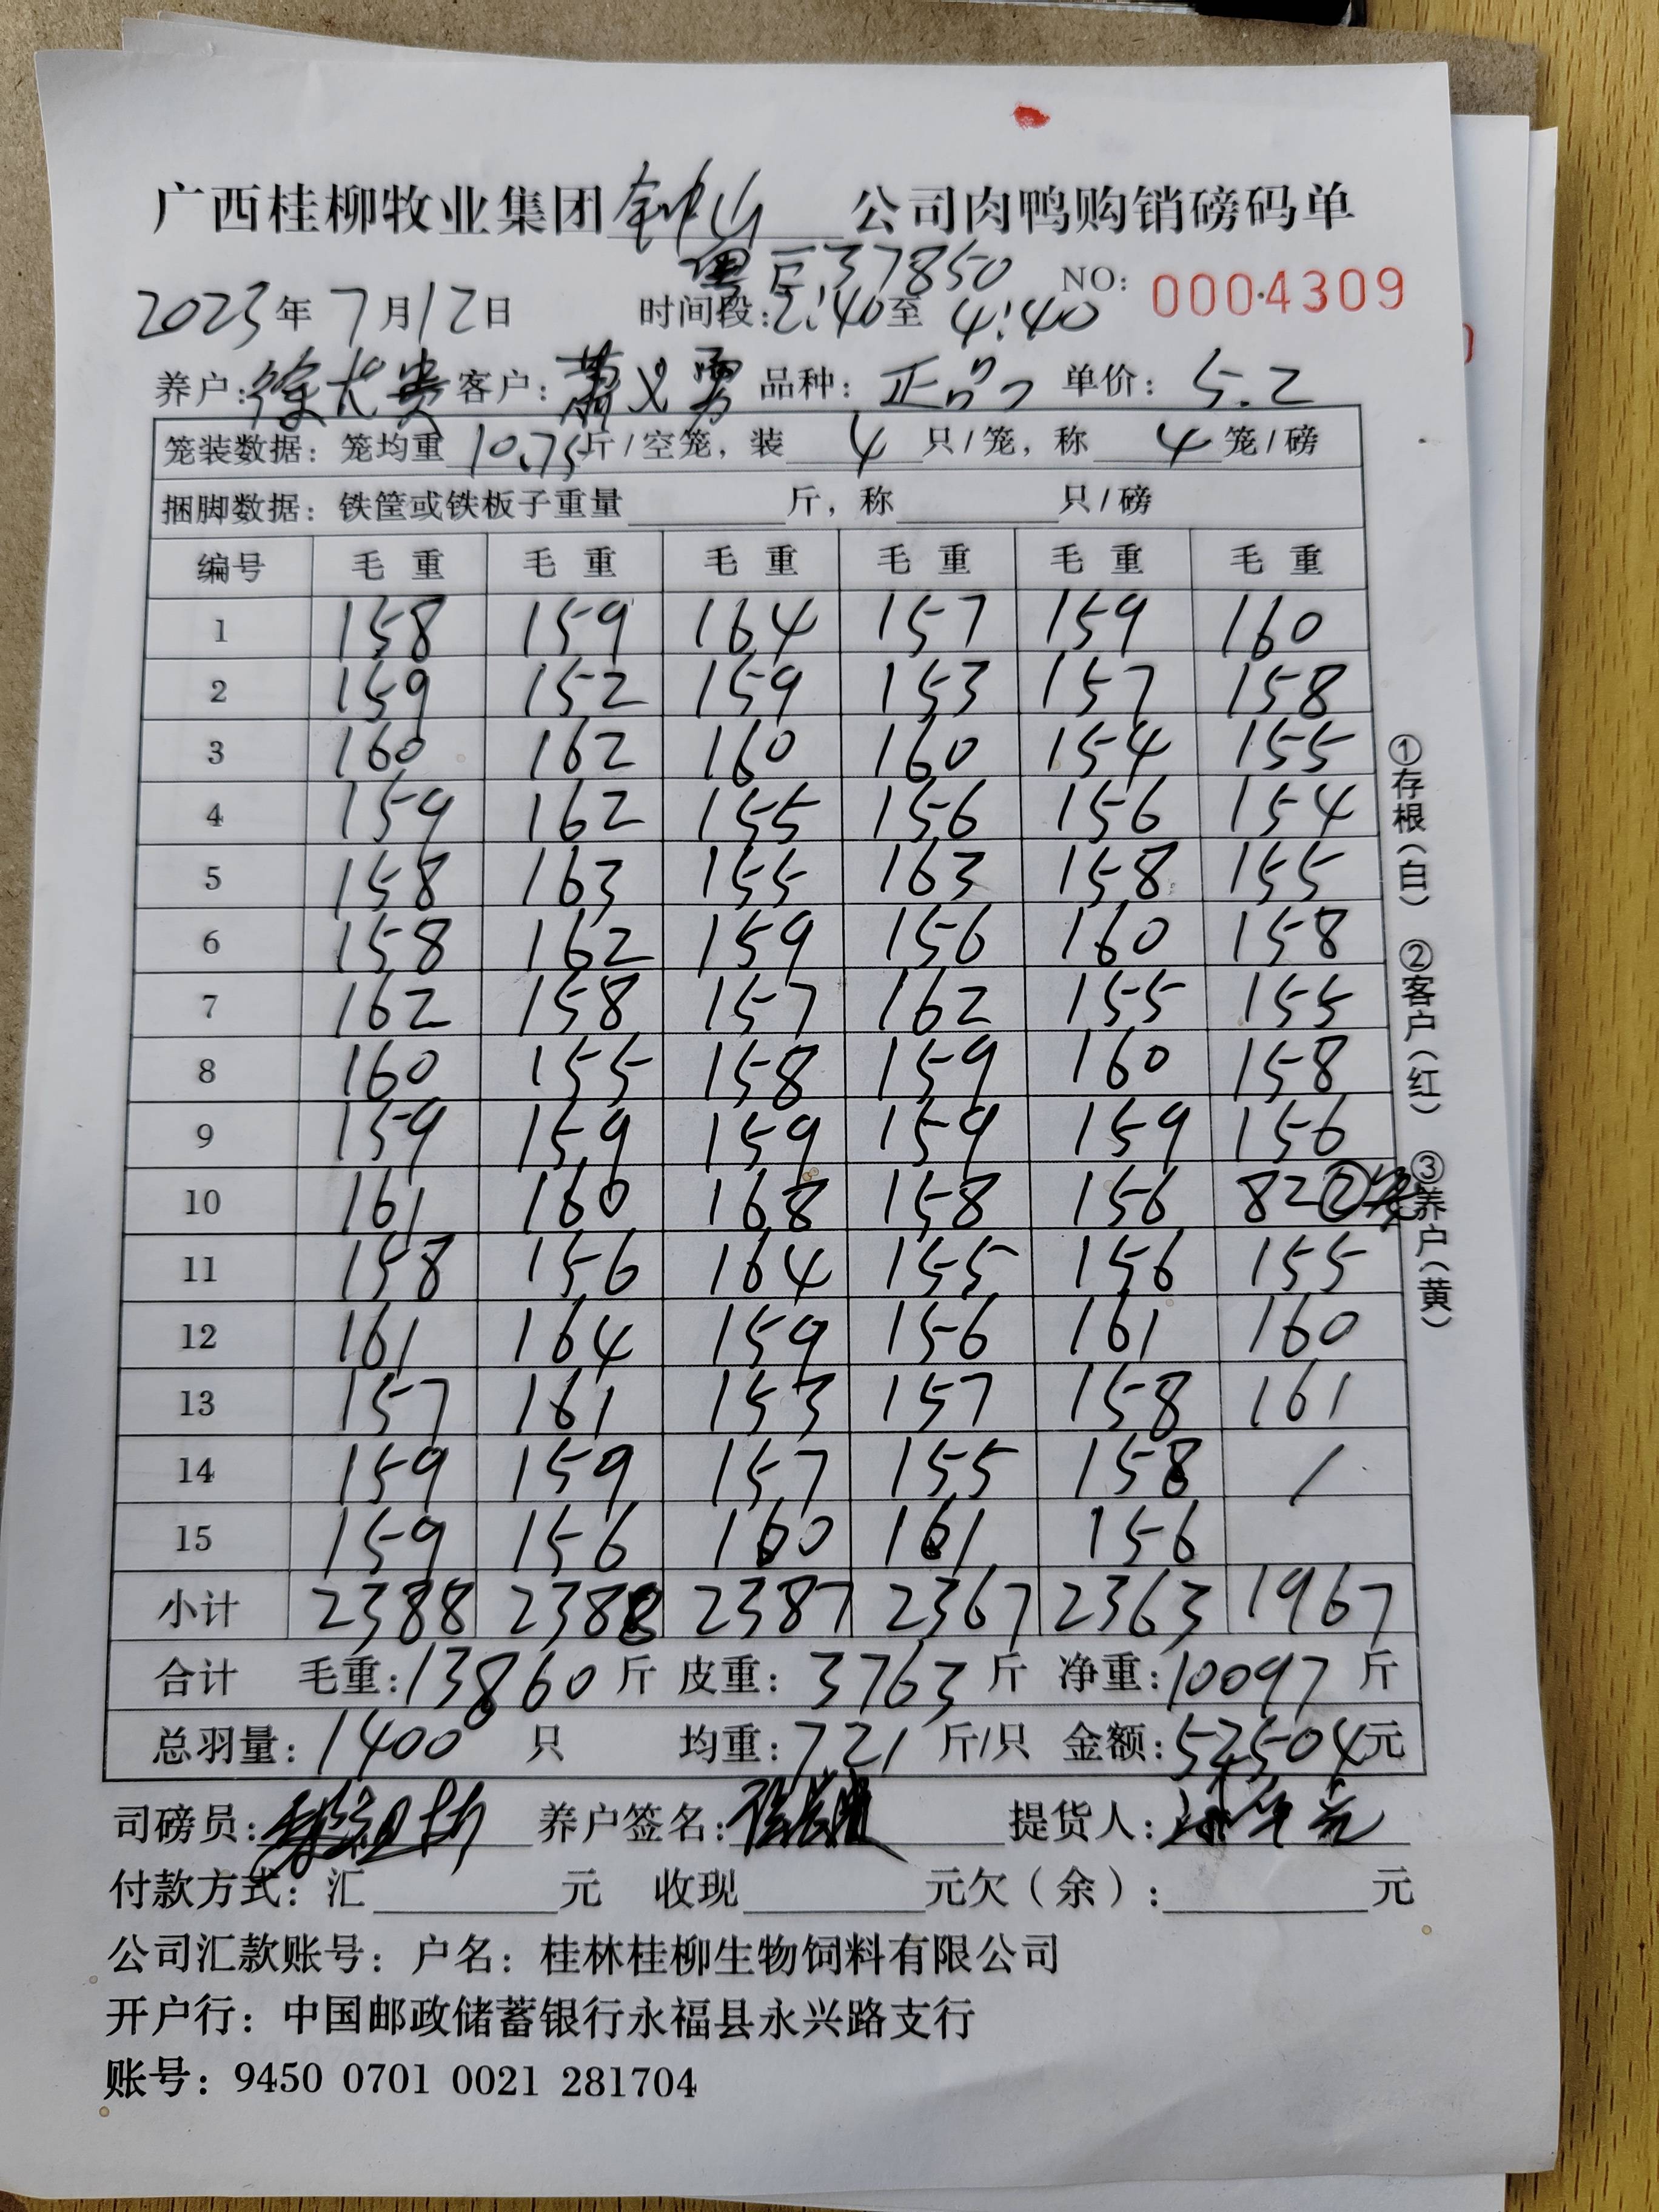 广西桂柳牧业集团钟山公司肉鸭购销磅码单
粤E37850
2023年7月12日 时间段:2:40至4:40 NO: 0004309
养户:徐长贵 客户:萧义勇 品种:正品 单价:5.2
笼装数据:笼均重10.75斤/空笼,装4只/笼,称4笼/磅
捆脚数据:铁筐或铁板子重量 斤,称 只/磅
编号 毛重 毛重 毛重 毛重 毛重 毛重
1 158 159 164 157 159 160
2 159 152 159 153 157 158
3 160 162 160 160 154 155
4 159 162 155 156 156 154
5 158 163 155 163 158 155
6 158 162 159 156 160 158
7 162 158 157 162 155 155
8 160 155 158 159 160 158
9 159 159 159 159 159 156
10 161 160 168 158 156 82②笼
11 158 156 164 155 156 155
12 161 164 159 156 161 160
13 157 161 153 157 158 161
14 159 159 157 155 158 /
15 159 156 160 161 156
小计 2388 2388 2387 2367 2363 1967
合计 毛重:13860斤 皮重:3763斤 净重:10097斤
总羽量:1400只 均重:7.21斤/只 金额:52504元
司磅员: 养户签名: 提货人:
付款方式:汇 元 收现 元欠(余): 元
公司汇款账号:户名:桂林桂柳生物饲料有限公司
开户行:中国邮政储蓄银行永福县永兴路支行
账号:9450 0701 0021 281704
①存根(白) ②客户(红) ③养户(黄)